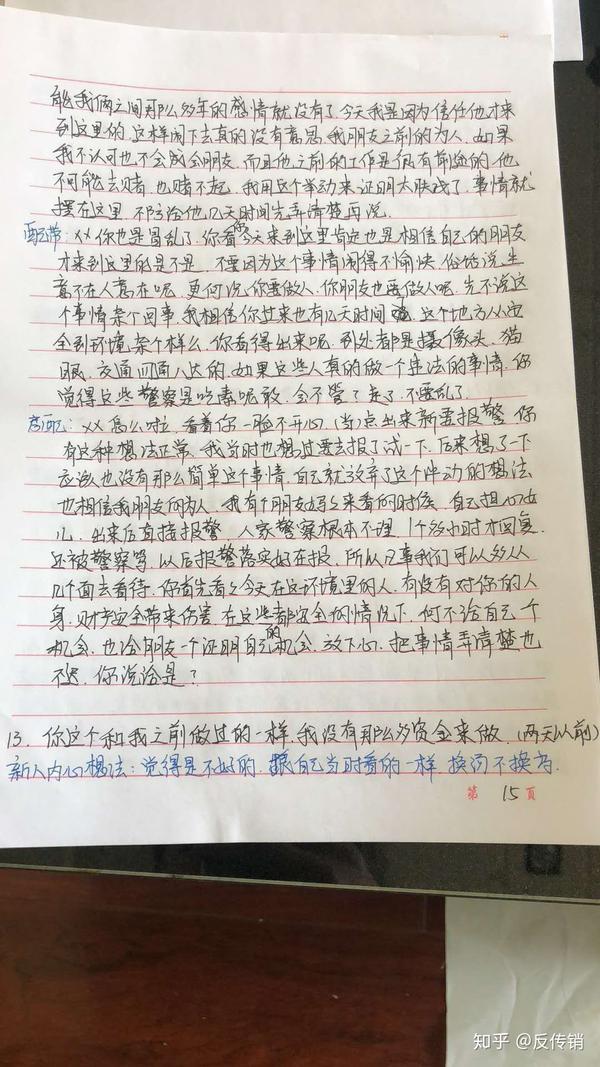 能我俩之间那么多年的感情就没有了.今天我是因为信任他才来
到这里的.这样闹下去真的没有意思.我朋友之前的为人.如果
我不认可也不会成会朋友.而且他之前的工作是很有前途的.他
不可能去赌.也赌不起.我用这个举动来证明太肤浅了.事情就
摆在这里.不防给他几天时间先弄清楚再说.
配带:xx你也是冒乱了.你看你今天来到这里肯定也是相信自己的朋友
才来到这里的是不是.不要因为这个事情闹得不愉快.俗话说生
意不在人意在呢.更何况你要做人.你朋友也要做人呢.先不说这
个事情杂个回事.我相信你过来也有几天时间.这个地方从安
全到环境杂个样么.你看得出来呢.到处都是摄像头.猫
眼.交通四角八达的.如果这些人真的做一个违法的事情.你
觉得这些警察是吃素呢.敢.会不管了.走了.不要乱了.
xx怎么啦.看着你一脸不开心.(当)点出来新要报警.你
有这种想法正常.我当时也想过要去报了试一下.后来想了一下
应该也没有那么简单这个事情.自己就放弃了这个冲动的想法
也相信我朋友的为人.我有个朋友妈么来看的时候.自己担心女
儿.出来后直接报警.人家警察根本不理.1个多小时才回复.
还被警察骂.以后报警落实好在报.所以凡事我们可以多从
几个面去看待.你首先看么今天在这环境里的人.有没有对你的人
身.财产安全带来伤害.在这些都安全的情况下.何不给自己个
机会.也给朋友一个证明自己的机会.放下心.把事情弄清楚也
不迟.你说给是?
13.你这个和我之前做过的一样.我没有那么多资金来做.(两天以前)
新人内心想法:觉得是不好的.跟自己当时看的一样.换汤不换药.
第 15 頁
知乎 @反传销